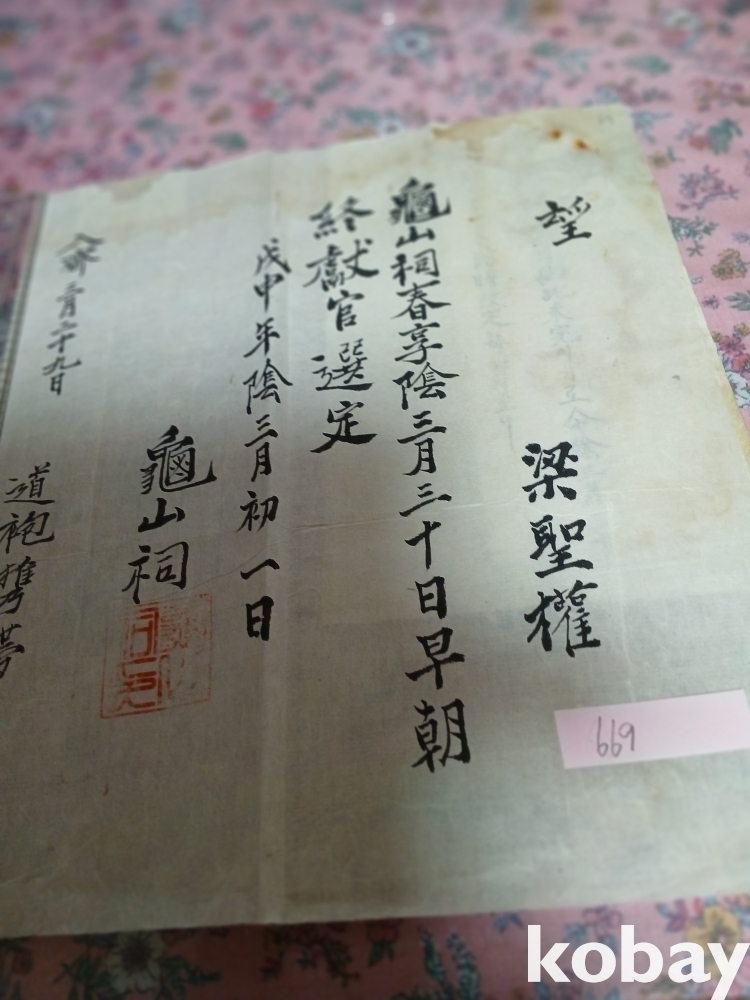 望 梁聖權
龜山祠春享陰三月三十日早朝
終獻官選定
戊申年陰三月初一日
龜山祠
入齋三月二十九日
道袍
669
kobay